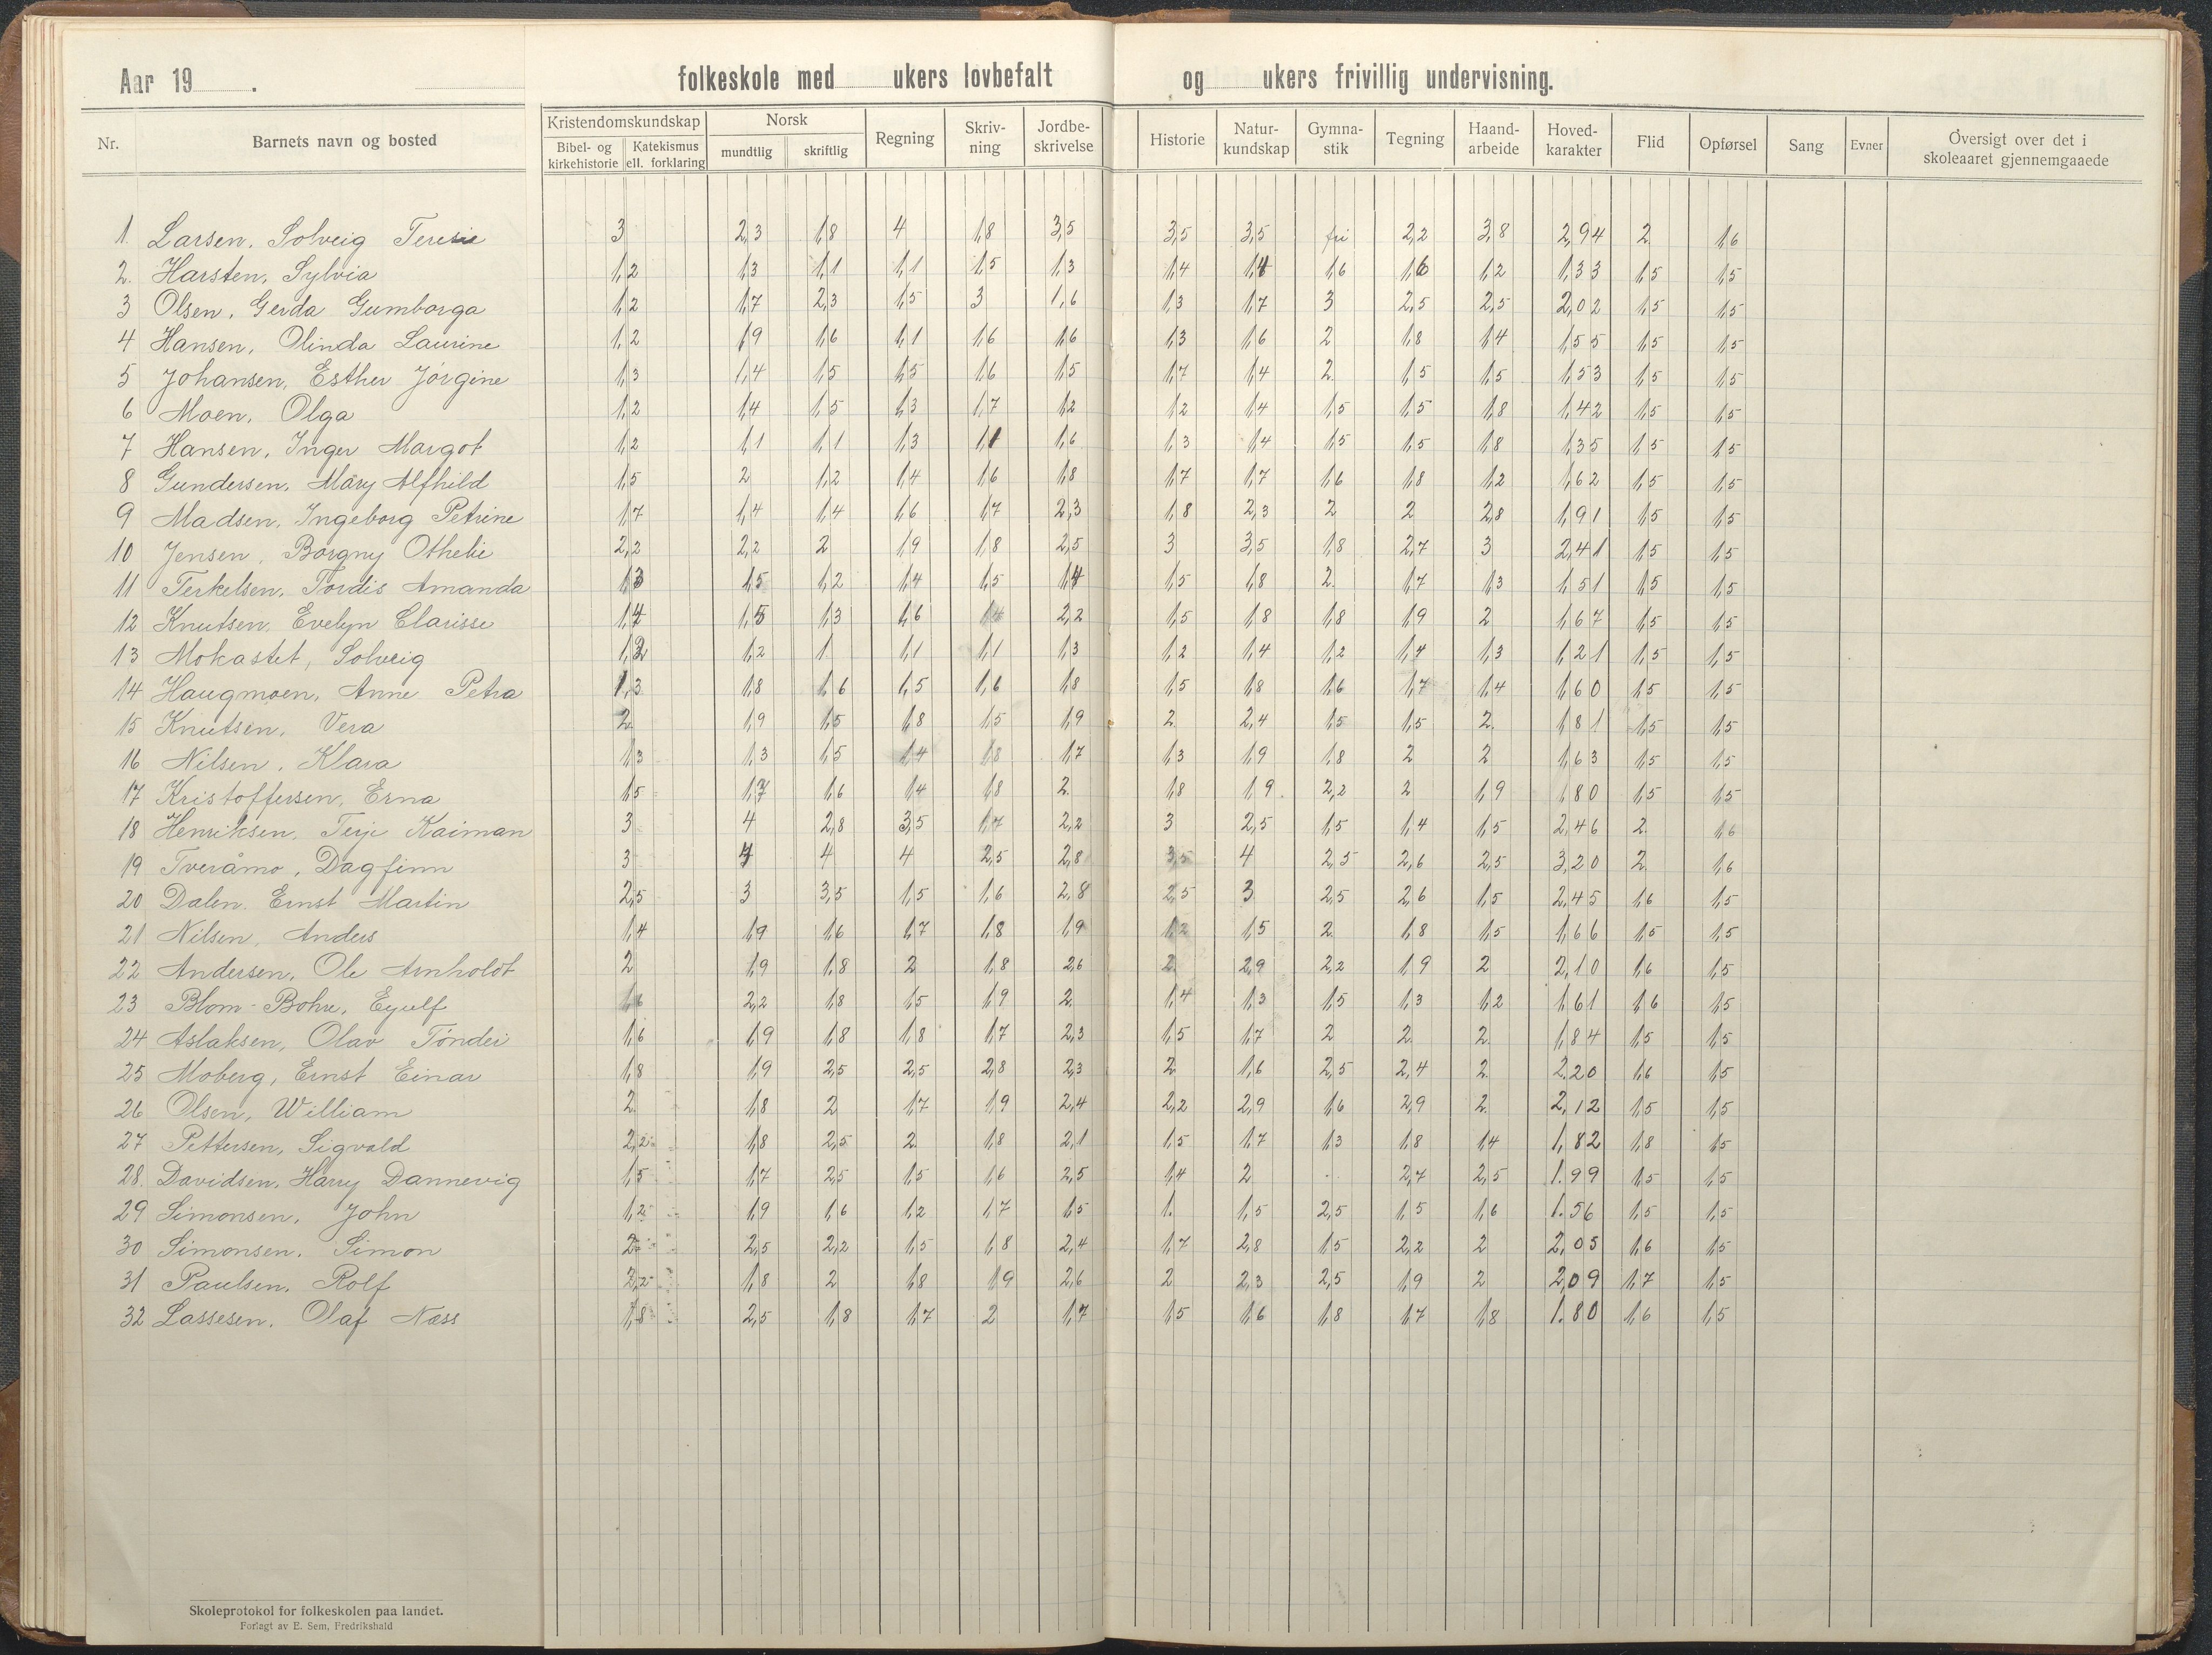 Aar 19 . folkeskole med ukers lovbefalt og ukers frivillig undervisning.
Nr. Barnets navn og bosted Kristendomskundskap Bibel- og kirkehistorie Katekismus ell. forklaring Norsk mundtlig skriftlig Regning Skriv-ning Jordbe-skrivelse Historie Natur-kundskap Gymna-stik Tegning Haand-arbeide Hoved-karakter Flid Opførsel Sang Evner Oversigt over det i skoleaaret gjennemgaaede
1. Larsen, Solveig Teresie 3 2,3 1,8 4 1,8 3,5 3,5 3,5 fri 2,2 3,8 2,94 2 1,6
2. Harsten, Sylvia 1,2 1,3 1,1 1,1 1,5 1,3 1,4 1,4 1,6 1,6 1,2 1,33 1,5 1,5
3 Olsen, Gerda Gumborga 1,2 1,7 2,3 1,5 3 1,6 1,3 1,7 3 2,5 2,5 2,02 1,5 1,5
4 Hansen, Olinda Laurine 1,2 1,9 1,6 1,1 1,6 1,6 1,3 1,6 2 1,8 1,4 1,55 1,5 1,5
5 Johansen, Esther Jørgine 1,3 1,4 1,5 1,5 1,6 1,5 1,7 1,4 2. 1,5 1,5 1,53 1,5 1,5
6 Moen, Olga 1,2 1,4 1,5 1,3 1,7 1,2 1,2 1,4 1,5 1,5 1,8 1,42 1,5 1,5
7 Hansen, Inger Margot 1,2 1,1 1,1 1,3 1,1 1,6 1,3 1,4 1,5 1,5 1,8 1,35 1,5 1,5
8 Gundersen, Mary Alfhild 1,5 2 1,2 1,4 1,6 1,8 1,7 1,7 1,6 1,8 1,2 1,62 1,5 1,5
9 Madsen, Ingeborg Petrine 1,7 1,4 1,4 1,6 1,7 2,3 1,8 2,3 2 2 2,8 1,91 1,5 1,5
10 Jensen, Borgny Othelie 2,2 2,2 2 1,9 1,8 2,5 3 3,5 1,8 2,7 3 2,41 1,5 1,5
11 Terkelsen, Tordis Amanda 1,3 1,5 1,2 1,4 1,5 1,4 1,5 1,8 2. 1,7 1,3 1,51 1,5 1,5
12 Knutsen, Evelyn Clarisse 1,4 1,5 1,3 1,6 2,2 1,5 1,8 1,8 1,9 2 1,67 1,5 1,5
13 Mokastet, Solveig 1,2 1,2 1. 1,1 1,1 1,3 1,2 1,4 1,2 1,4 1,3 1,21 1,5 1,5
14 Haugmoen, Anne Petra 1,3 1,8 1,6 1,5 1,6 1,8 1,5 1,8 1,6 1,7 1,4 1,60 1,5 1,5
15 Knutsen, Vera 2. 1,9 1,5 1,8 1,5 1,9 2. 2,4 1,5 1,5 2. 1,81 1,5 1,5
16 Nilsen, Klara 1,3 1,3 1,5 1,4 1,8 1,7 1,3 1,9 1,8 2 2 1,63 1,5 1,5
17 Kristoffersen, Erna 1,5 1,7 1,6 1,4 1,8 2. 1,8 1,9. 2,2 2 1,9 1,80 1,5 1,5
18 Henriksen, Terje Kaiman 3 4 2,8 3,5 1,7 2,2 3 2,5 1,5 1,4 1,5 2,46 2. 1,6
19 Tveråmo, Dagfinn 3 4 4 4 2,5 2,8 3,5 4 2,5 2,6 2,5 3,20 2. 1,6
20 Dalen, Ernst Martin 2,5 3 3,5 1,5 1,6 2,8 2,5 3 2,5 2,6 1,5 2,45 1,6 1,5
21 Nilsen, Anders 1,4 1,9 1,6 1,7 1,8 1,9 1,2 1,5 2. 1,8 1,5 1,66 1,5 1,5
22 Andersen, Ole Arnholdt 2 1,9 1,8 2 1,8 2,6 2. 2,9 2,2 1,9 2 2,10 1,6 1,5
23 Blom-Bohr, Eyulf 1,6 2,2 1,8 1,5 1,9 2. 1,4 1,3 1,5 1,3 1,2 1,61 1,6 1,5
24 Aslaksen, Olav Tønder 1,6 1,9 1,8 1,8 1,7 2,3 1,5 1,7 2 2 2. 1,84 1,5 1,5
25 Moberg, Ernst Einar 1,8 1,9 2,5 2,5 2,8 2,3 2. 1,6 2,5 2,4 2. 2.20 1,6 1,5
26 Olsen, William 2. 1,8 2 1,7 1,9 2,4 2,2 2,9 1,6 2,9 2. 2,12 1,5 1,5
27 Pettersen, Sigvald 2,2 1,8 2,5 2 1,8 2,1 1,5 1,7 1,3 1,8 1,4 1,82 1,8 1,5
28. Davidsen, Harry Dannevig 1,5 1,7 2,5 1,5 1,6 2,5 1,4 2 . 2,7 2,5 1.99 1,5 1,5
29 Simonsen, John 1,2 1,9 1,6 1,2 1,7 1,5 1. 1,5 2,5 1,5 1,6 1.56 1,5 1,5
30 Simonsen, Simon 2 2,5 2,2 1,5 1,8 2,4 1,7 2,8 1,5 2,2 2 2,05 1,6 1,5
31 Paulsen, Rolf 2,2 1,8 2 1,8 1,9 2,6 2 2,3 2,5 1,9 2 2,09 1,7 1,5
32 Lassesen, Olaf Næss 1,8 2,5 1,8 1,7 2 1,7 1,5 1,6 1,8 1,7 1,8 1.80 1,6 1,5
Skoleprotokol for folkeskolen paa landet.
Forlagt av E. Sem, Fredrikshald